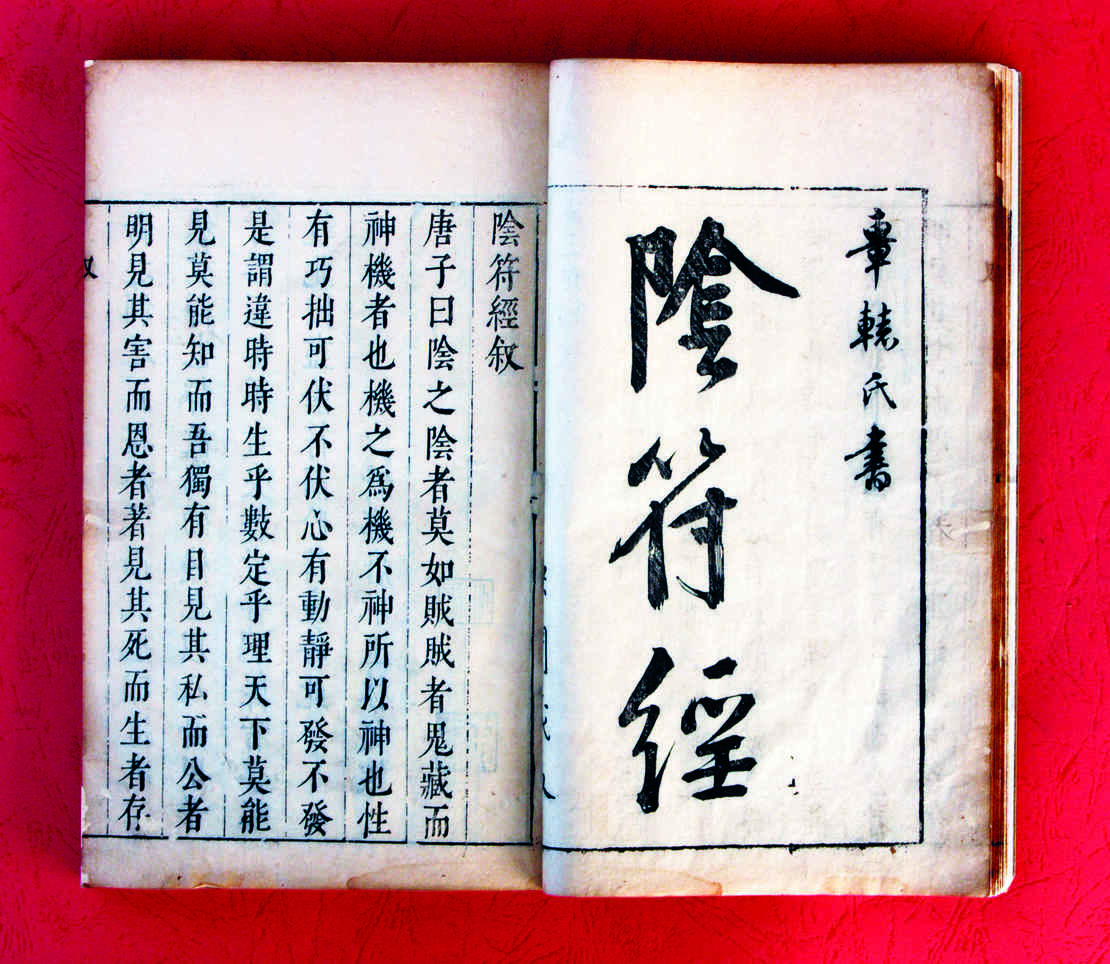 軒轅氏書
陰符經
陰符經叙
唐子曰陰之陰者莫如賊賊者鬼藏而
神機者也機之爲機不神所以神也性
有巧拙可伏不伏心有動靜可發不發
是謂違時時生乎數定乎理天下莫能
見莫能知而吾獨有目見其私而公者
明見其害而恩者著見其死而生者存